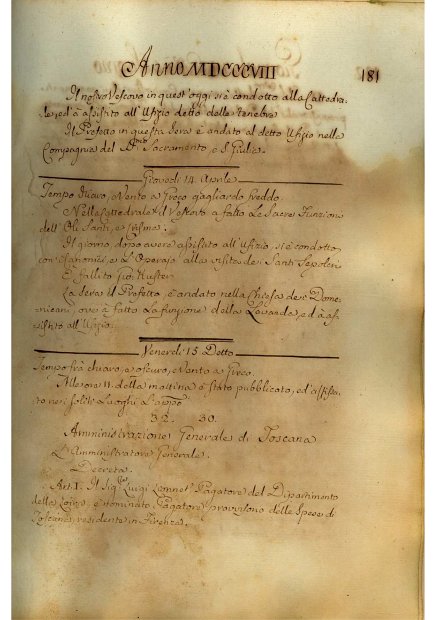 Anno MDCCCVIII
181
Il nostro Vescovo in quest'oggi si è condotto alla Cattedra-
le, ed à assistito all'Ufizio detto delle tenebre
Il Prefetto in questa sera è andato al detto Ufizio nella
Compagnia del Sacramento, e S. Giulia.
Giovedì 14 Aprile
Tempo chiaro, Vento a Greco gagliardo freddo.
Nella Cattedrale il Vescovo à fatto le Sacre Funzioni
dell'Oli Santi, e Crisma.
Il giorno, dopo avere assistito all'Ufizio, si è condotto
con Canonici, e L'Operajo alla visita dei Santi Sepolcri
È fallito
La Sera il Prefetto, è andato nella Chiesa dei Dome-
nicani, ove à fatto la funzione della Lavanda, ed à as-
sistito all'Ufizio.
Venerdì 15 Detto
Tempo frà chiaro, e oscuro, Vento a Greco.
Alle ore 11 della mattina è stato pubblicato, ed affissa-
to nei soliti Luoghi
32. 30.
Amministrazione Generale di Toscana
L'Amministratore Generale.
Decreta.
Art. I. Il Sig. Luigi Pagatore del Dipartimento
della è nominato Pagatore provvisorio delle Spese di
Toscana, residente in Firenze.